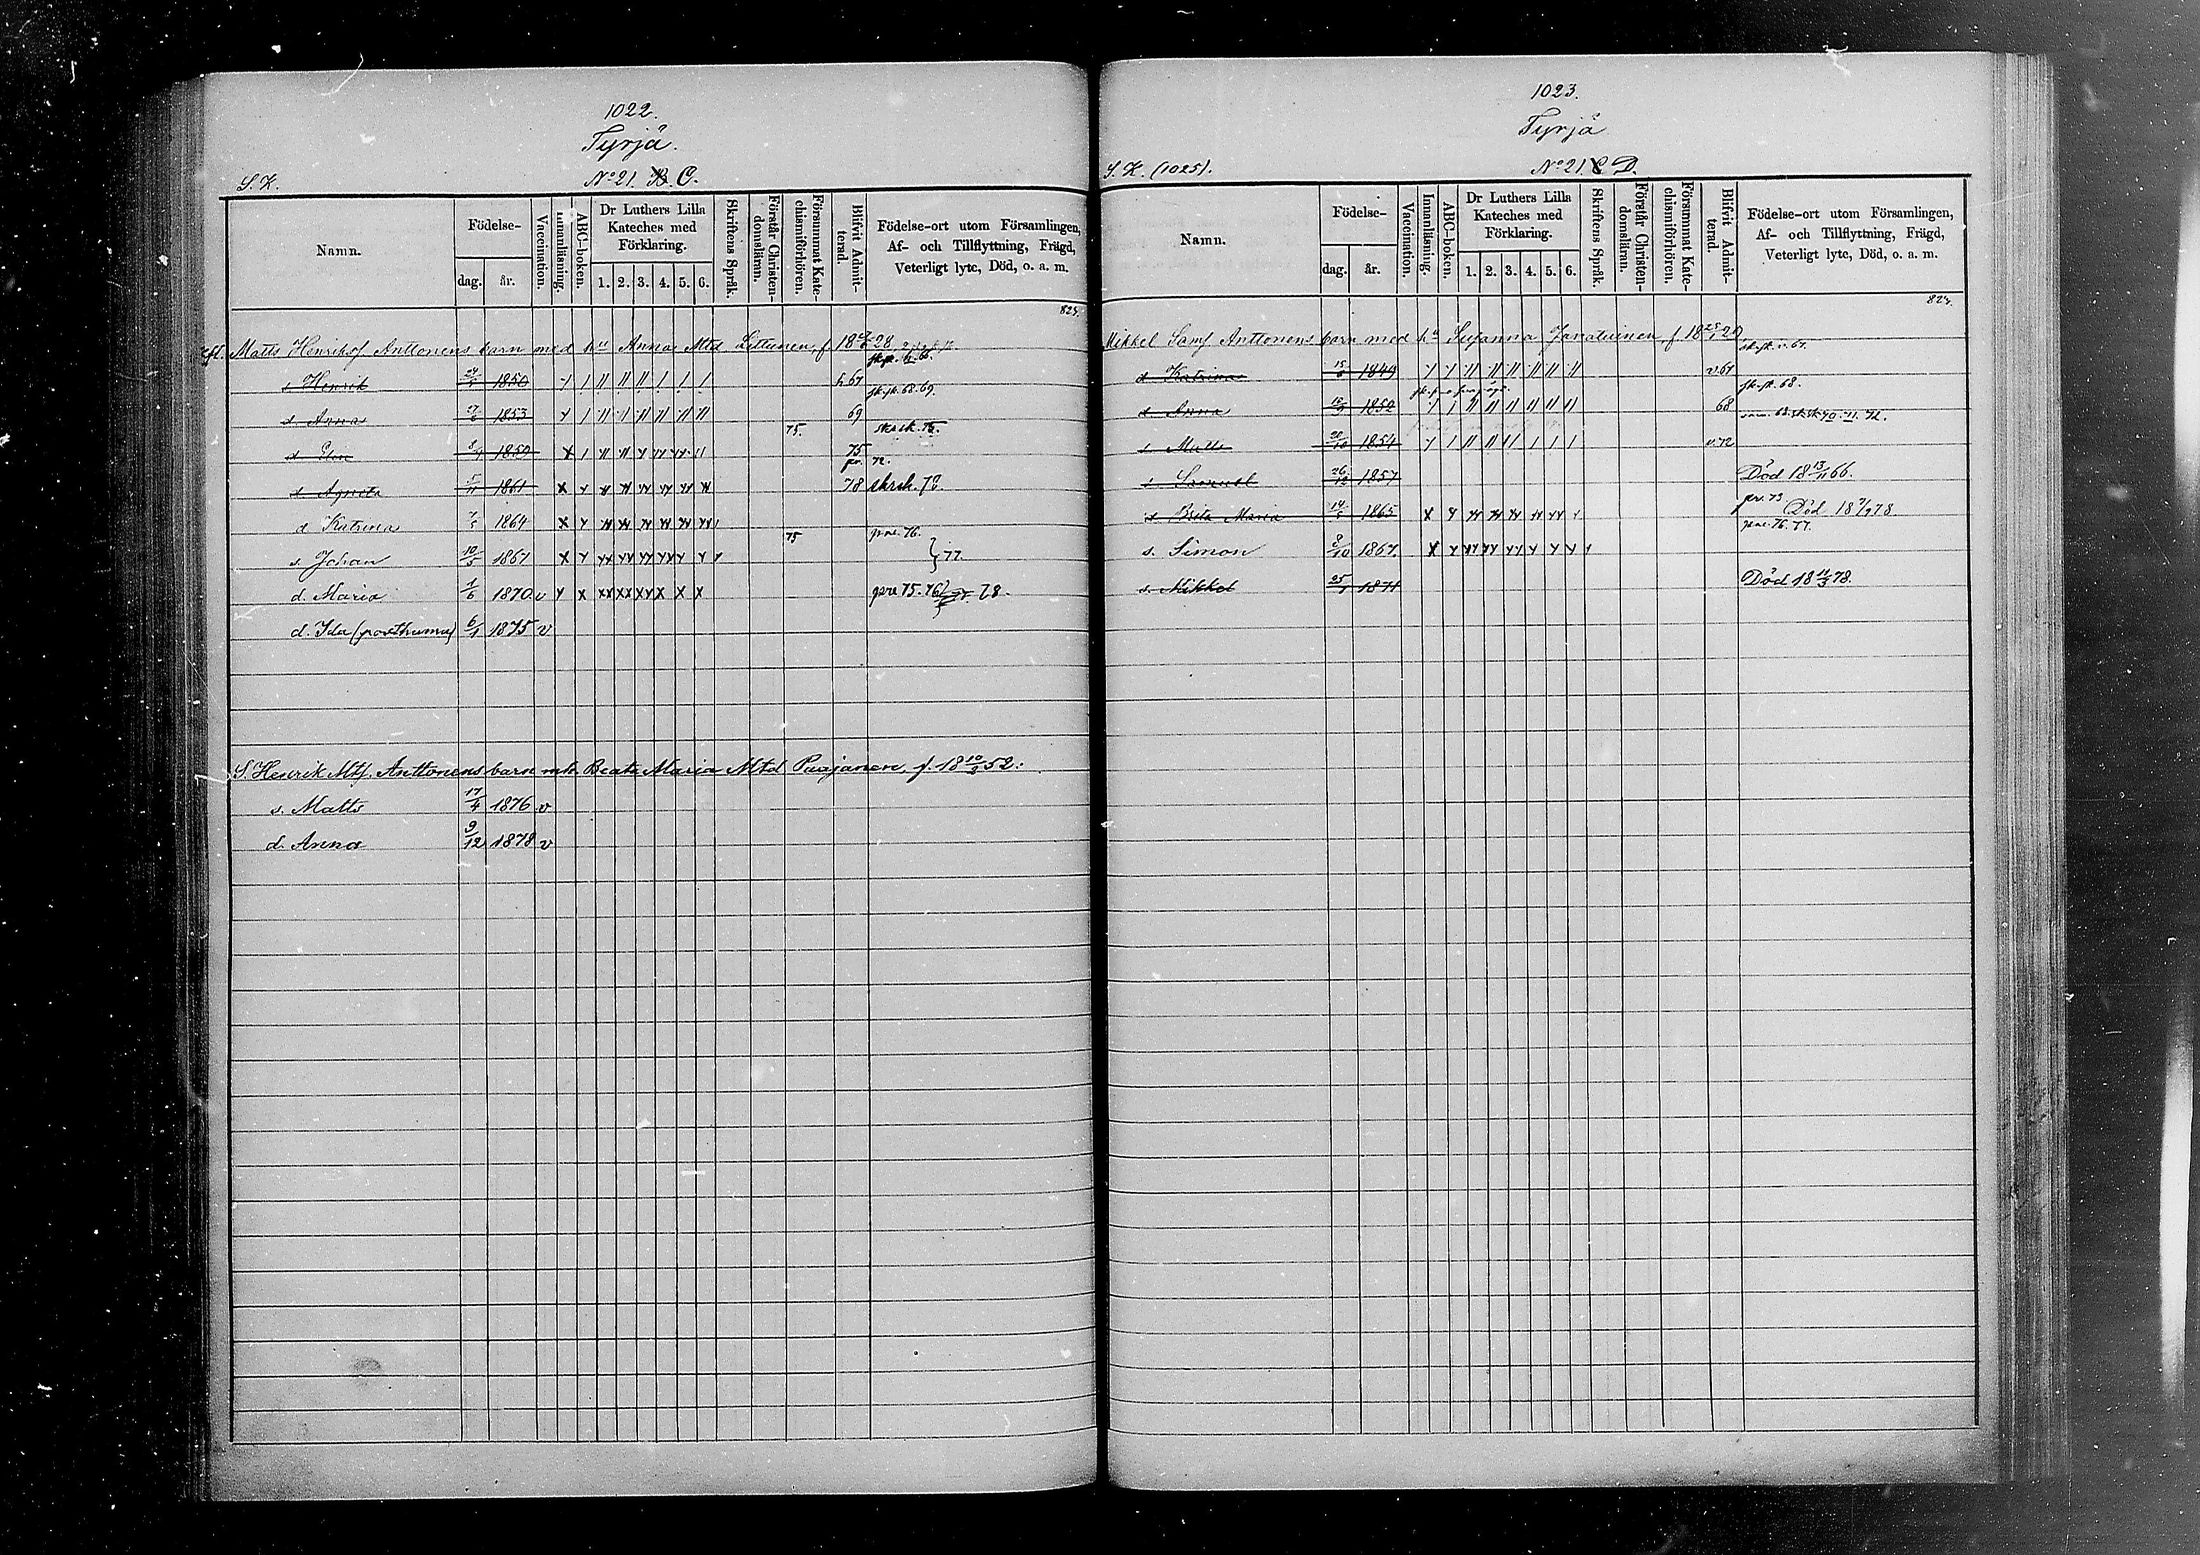 1022.
Tyrjä.
S. K.
No 21. B C.
Namn.
Födelse-
dag.
år.
Vaccination.
Innanläsning.
ABC-boken.
Dr Luthers Lilla
Kateches med
Förklaring.
1. 2. 3. 4. 5. 6.
Skriftens Språk.
Förstår Christen-
domsläran.
Försummat Kate-
chismiförhören.
Blifvit Admit-
terad.
Födelse-ort utom Församlingen,
Af- och Tillflyttning, Frägd,
Veterligt lyte, Död, o. a. m.
Matts Henriksf Anttonens barn med hu Anna Mtd Littunen, f. 18 28
s Henrik 1850 67
sk.sk. 68. 69.
d. Anna 1853 69
75.
d Elin 8/4 1859 75
72.
d Agneta 5/11 1861 78 skrsk. 78.
d Katrina 7/5 1864 pre. 76.
75
s. Johan 10/5 1867 77
d. Maria 1/6 1870 v pre 75. 76 78.
d. Ida (posthuma) 6/1 1875 v
S. Henrik Mtf. Anttonens barn mh. Beata Maria Mtd Paajanen, f. 18 10/3 52:
s. Matts 17/4 1876 v
d. Anna 9/12 1878 v
1023.
Tyrjä
S. K. (1025).
No 21. C D.
Namn.
Födelse-
dag.
år.
Vaccination.
Innanläsning.
ABC-boken.
Dr Luthers Lilla
Kateches med
Förklaring.
1. 2. 3. 4. 5. 6.
Skriftens Språk.
Förstår Christen-
domsläran.
Försummat Kate-
chismiförhören.
Blifvit Admit-
terad.
Födelse-ort utom Församlingen,
Af- och Tillflyttning, Frägd,
Veterligt lyte, Död, o. a. m.
Mikkel Samf Anttonens barn med hu Susanna Janatuinen, f. 18
d Katrina 1849 v. 67
sk.sk. 68.
d. Anna 1852 68
s Matts 20/10 1854 v. 72
s Samuel 26/12 1857 Död 18 13/11 66.
pr. 73
d Brita Maria 14/5 1865 Död 18 7/9 78
pre. 76. 77.
s. Simon 8/10 1867
s. Mikkel 25/1 1871 Död 18 11/3 78.